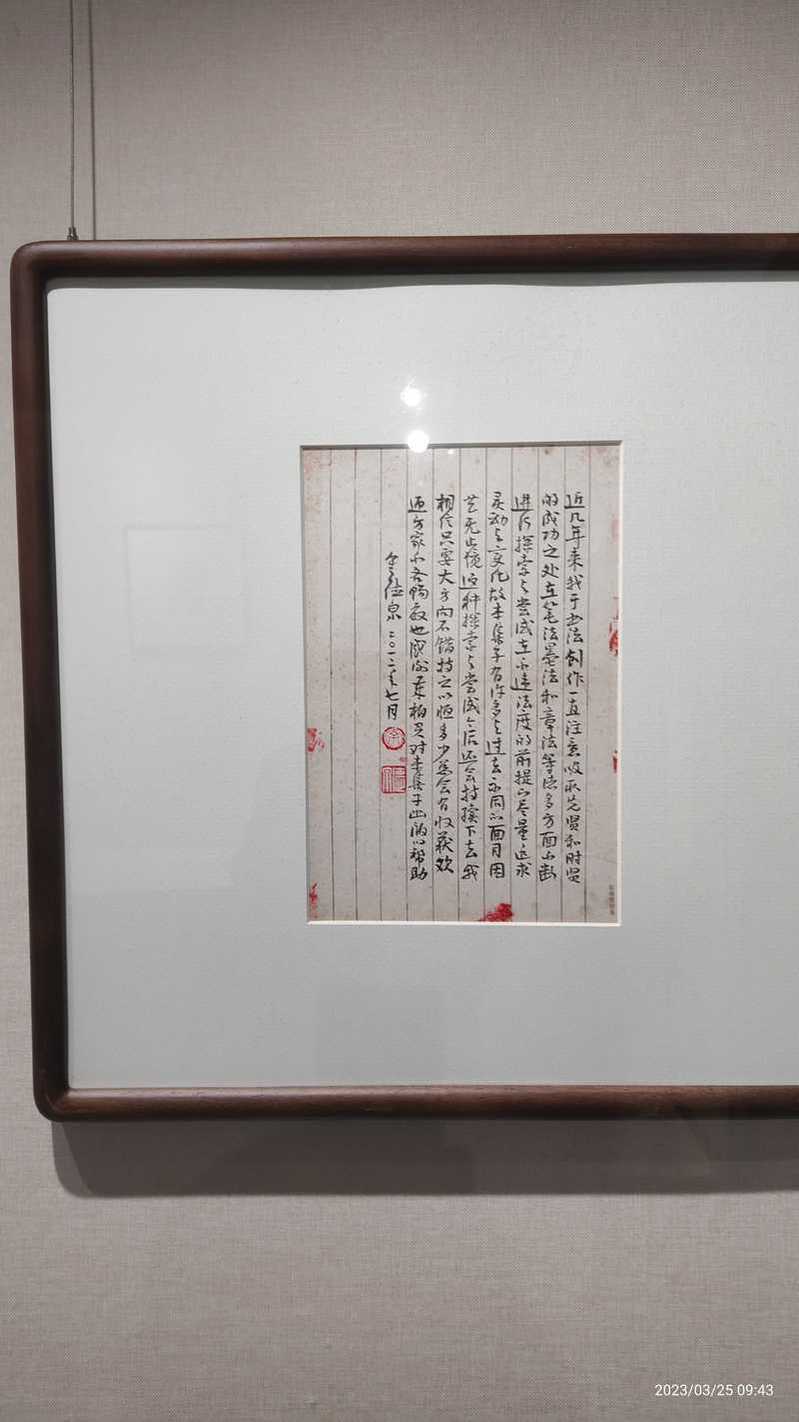 近几年来我于书法创作一直注意吸取先贤和时贤
的成功之处在笔法墨法和章法等诸多方面不断
进行探索之尝试在不违法度的前提下尽量追求
灵动之变化故本集子有许多与过去不同以面目因
艺无止境这种探索之尝试今后还会持续下去我
相信只要大方向不错持之以恒多少总会有收获欢
迎方家不吝赐教也感谢 对本集子出版以帮助
泉二〇一二年七月
2023/03/25 09:43